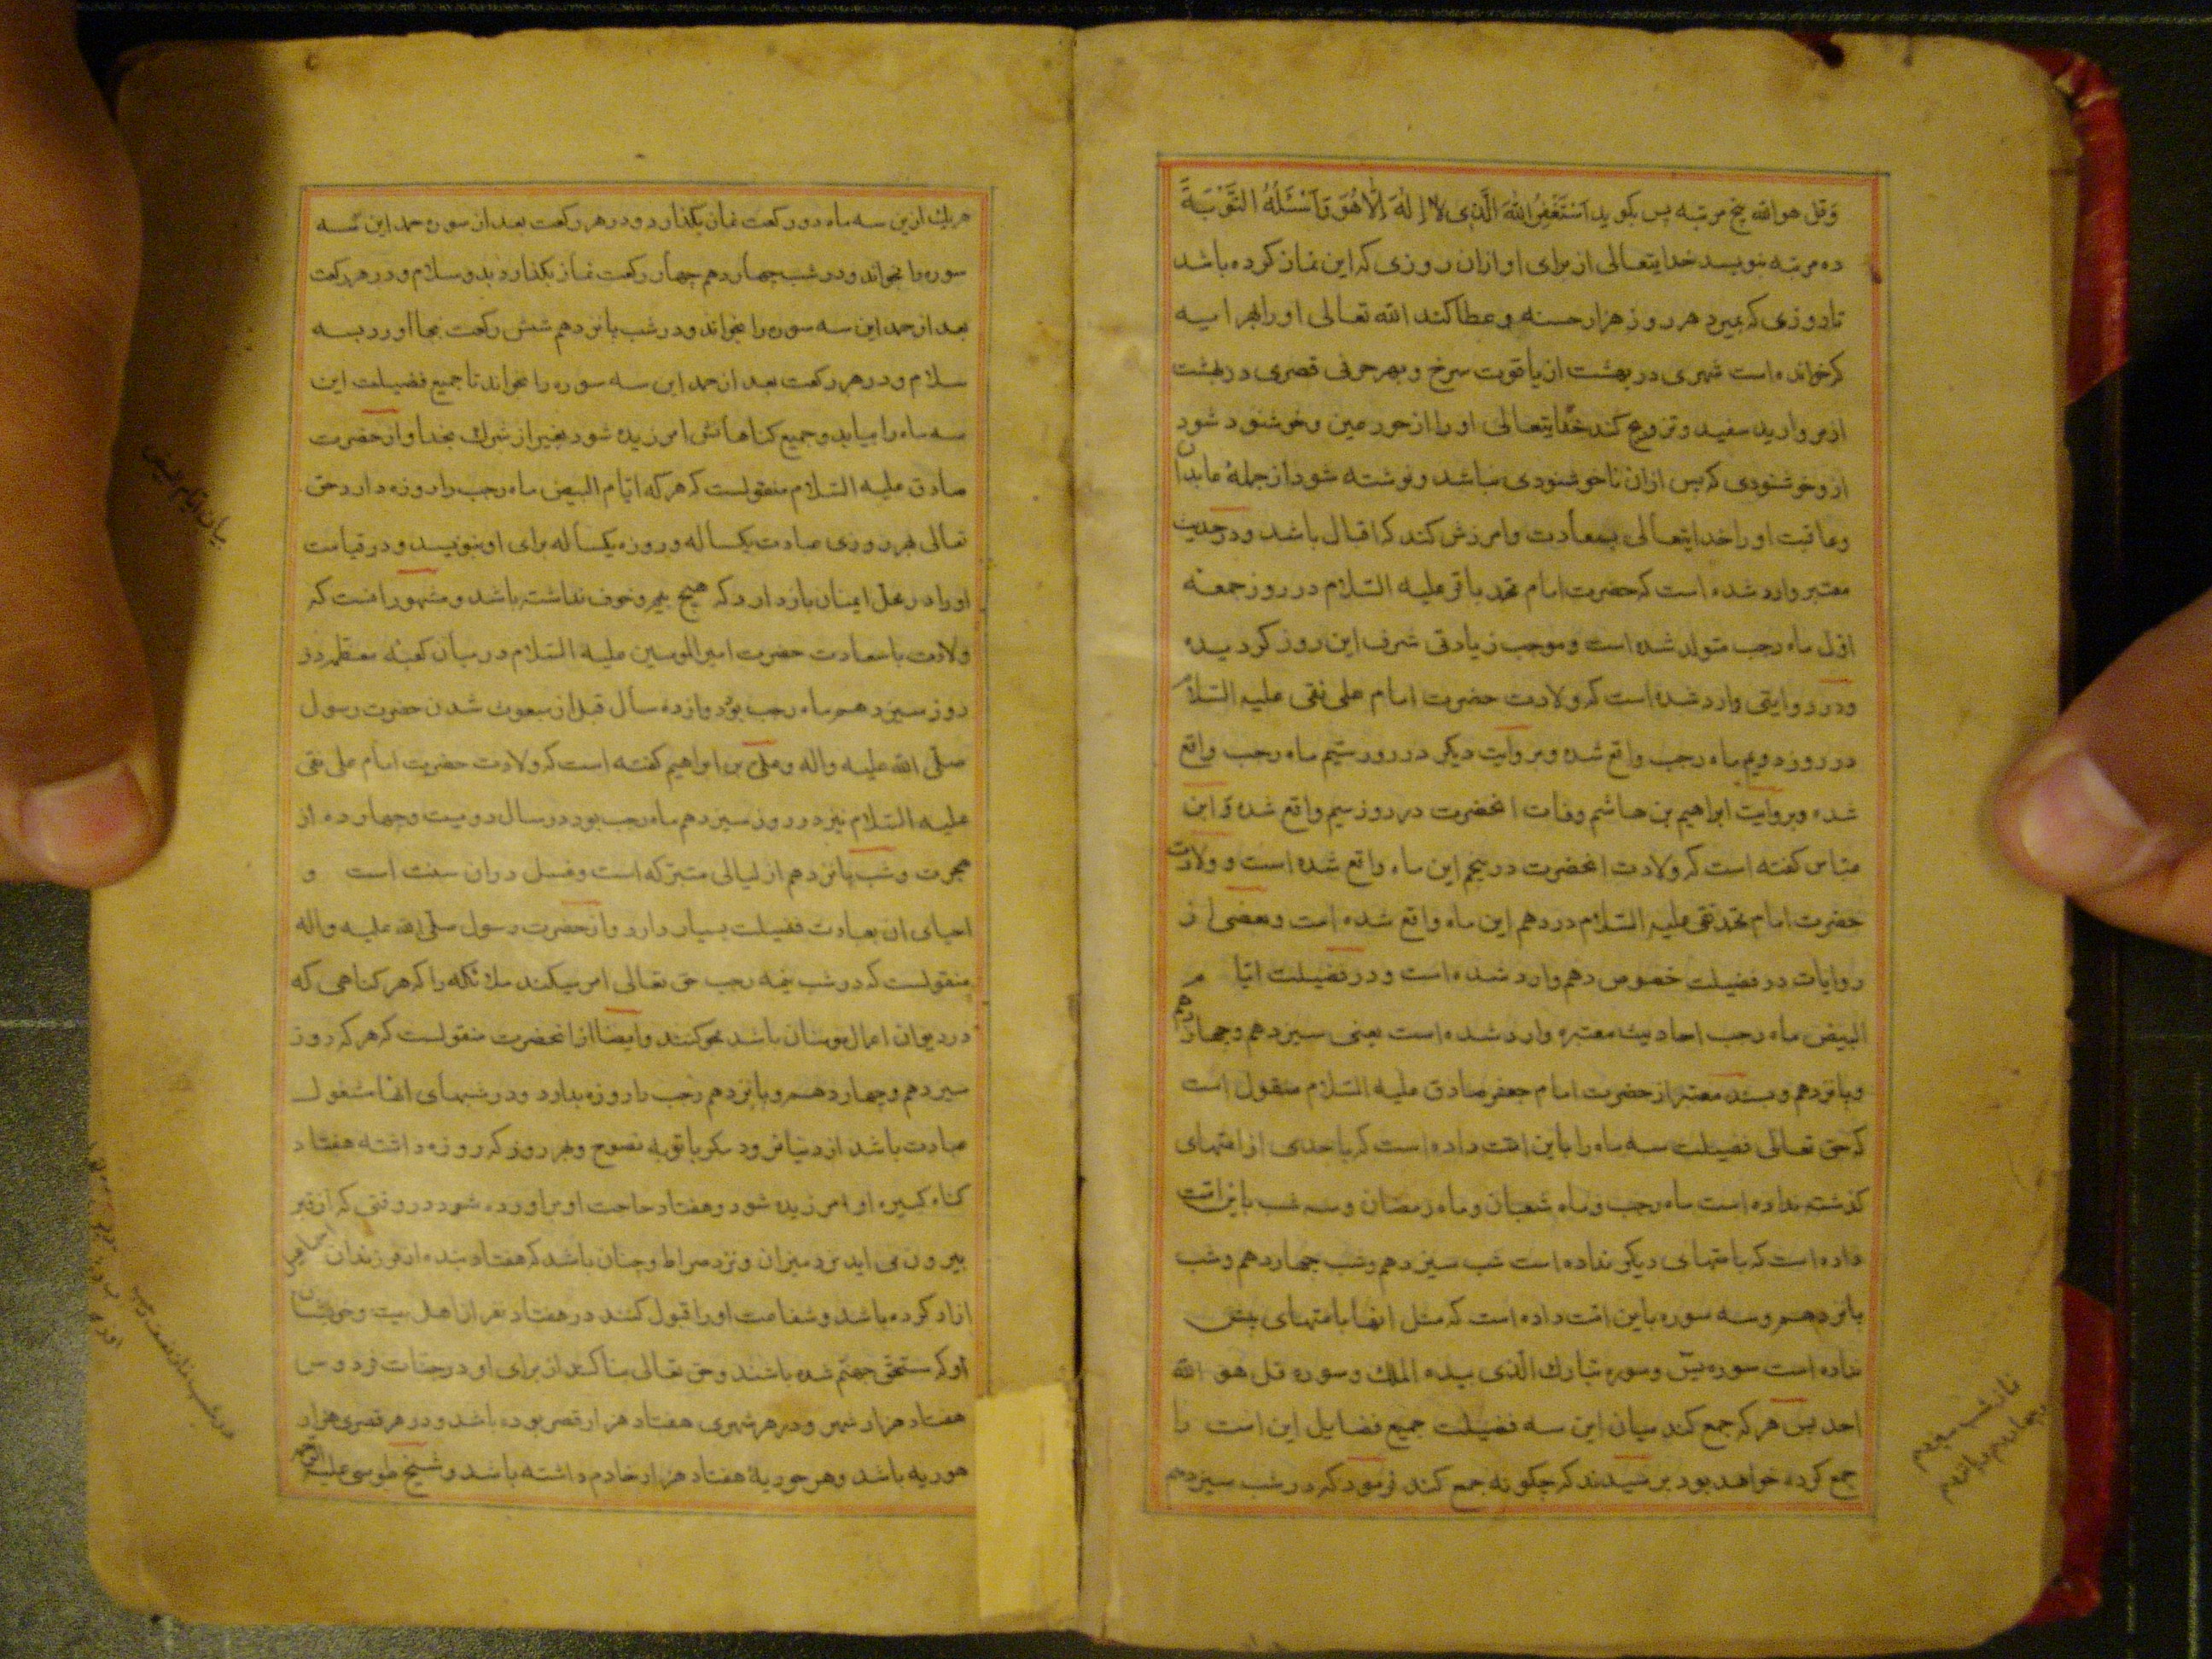 وَقل هو الله پنج مرتبه پس بکوید اَسْتَغْفِرُ اللهَ الَّذِی لا اِلٰهَ اِلّا هُوَ وَ اَسْئَلُهُ التَّوْبَةَ
ده مرتبه بنویسد خدایتعالی از برای او از ان روزی که این نماز کرده باشد
تا روزی که بمیرد هر روز هزار حسنه و عطا کند الله تعالی او را بهر ایه
که خوانده است شهری در بهشت از یاقوت سرخ و بهر حرفی قصری در بهشت
از مروارید سفید و تزویج کند خدایتعالی او را از حور عین و خوشنود شود
از و خوشنودی که پس از ان ناخوشنودی نباشد و نوشته شود از جملهٔ عابدان
وعاقبت او را خدایتعالی بسعادت وامرزش کند که اقبال باشد ودر حدیث
معتبر وارد شده است که حضرت امام محمد باقر علیه السّلام در روز جمعه
اوّل ماه رجب متولد شده است وموجب زیادتی شرف این روز کردیده
ودر روایتی وارد شده است که ولادت حضرت امام علی نقی علیه السّلام
در روز دویم ماه رجب واقع شده وبروایت دیکر در روز سیم ماه رجب واقع
شده وبروایت ابراهیم بن هاشم وفات انحضرت در روز سیم واقع شده و ابن
عیّاش کفته است که ولادت انحضرت در پنجم این ماه واقع شده است و ولادت
حضرت امام محمد تقی علیه السّلام در دهم این ماه واقع شده است وبعضی از
روایات در فضیلت خصوص دهم وارد شده است ودر فضیلت ایّام
البیض ماه رجب احادیث معتبره وارد شده است یعنی سیزدهم وچهاردهم
وپانزدهم وبسند معتبر از حضرت امام جعفر صادق علیه السّلام منقول است
که حق تعالی فضیلت سه ماه را باین امّت داده است که باحدی از امّتهای
کذشته نداده است ماه رجب وماه شعبان وماه رمضان وسه شب باین امّت
داده است که بامّتهای دیکر نداده است شب سیزدهم وشب چهاردهم وشب
پانزدهم وسه سوره باین امّت داده است که مثل انها بامّتهای پیش
نداده است سوره یس وسوره تبارك الّذی بیده الملك وسوره قل هو الله
احد پس هر که جمع کند میان این سه فضیلت جمیع فضایل این امّت را
جمع کرده خواهد بود پرسیدند که چکونه جمع کند فرمود که در شب سیزدهم
نماز شب سیزدهم
وچهاردهم وپانزدهم
هریك ازین سه ماه دو رکعت نماز بکذارد ودر هر رکعت بعد از سوره حمد این سه
سوره را بخواند ودر شب چهاردهم چهار رکعت نماز بکذارد بدو سلام ودر هر رکعت
بعد از حمد این سه سوره را بخواند ودر شب پانزدهم شش رکعت بجا اورد بسه
سلام ودر هر رکعت بعد از حمد این سه سوره را بخواند تا جمیع فضیلت این
سه ماه را بیابد وجمیع کناهانش امرزیده شود بغیر از شرك بخدا واز حضرت
صادق علیه السّلام منقولست که هر که ایّام البیض ماه رجب را روزه دارد حق
تعالی بهر روزی عبادت یکساله وروزه یکساله برای او بنویسد ودر قیامت
او را در محل ایمنان بازدارد که هیچ بیم وخوف نداشته باشد ومشهور انست که
ولادت باسعادت حضرت امیرالمومنین علیه السّلام در میان کعبهٔ معظّمه در
روز سیزدهم ماه رجب بود دوازده سال قبل از مبعوث شدن حضرت رسول
صلّی الله علیه واله وعلی بن ابراهیم کفته است که ولادت حضرت امام علی نقی
علیه السّلام نیز در روز سیزدهم ماه رجب بود در سال دویست وچهارده از
هجرت وشب پانزدهم از لیالی متبرّکه است وغسل در ان سنت است و
احیای ان بعبادت فضیلت بسیار دارد واز حضرت رسول صلّی الله علیه واله
منقولست که در شب نیمه رجب حق تعالی امر میکند ملائکه را که هر کناهی که
در دیوان اعمال مومنان باشد محو کنند وایضا از انحضرت منقولست که هر که روز
سیزدهم وچهاردهم وپانزدهم رجب را روزه بدارد ودر شبهای انها مشغول
عبادت باشد از دنیا نرود مکر باتوبه نصوح وبهر روز که روزه داشته هفتاد
کناه کبیره او امرزیده شود وهفتاد حاجت او براورده شود در وقتی که از قبر
بیرون می اید نزد میزان ونزد صراط وچنان باشد که هفتاد بنده از فرزندان اسماعیل
ازاد کرده باشد وشفاعت او را قبول کنند در هفتاد نفر از اهل بیت وخویشان
او که مستحق جهنّم شده باشند وحق تعالی بنا کند از برای او در جنّات فردوس
هفتاد هزار شهر ودر هر شهری هفتاد هزار قصر بوده باشد ودر هر قصری هزار
حوریه باشد وهر حوریهٔ هفتاد هزار خادم داشته باشد وشیخ طوسی علیه الرّحمه